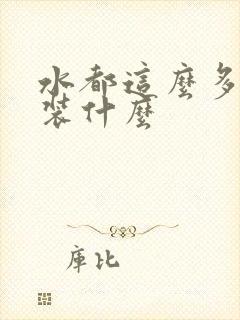 水都這麼多
裝什麼
庫比